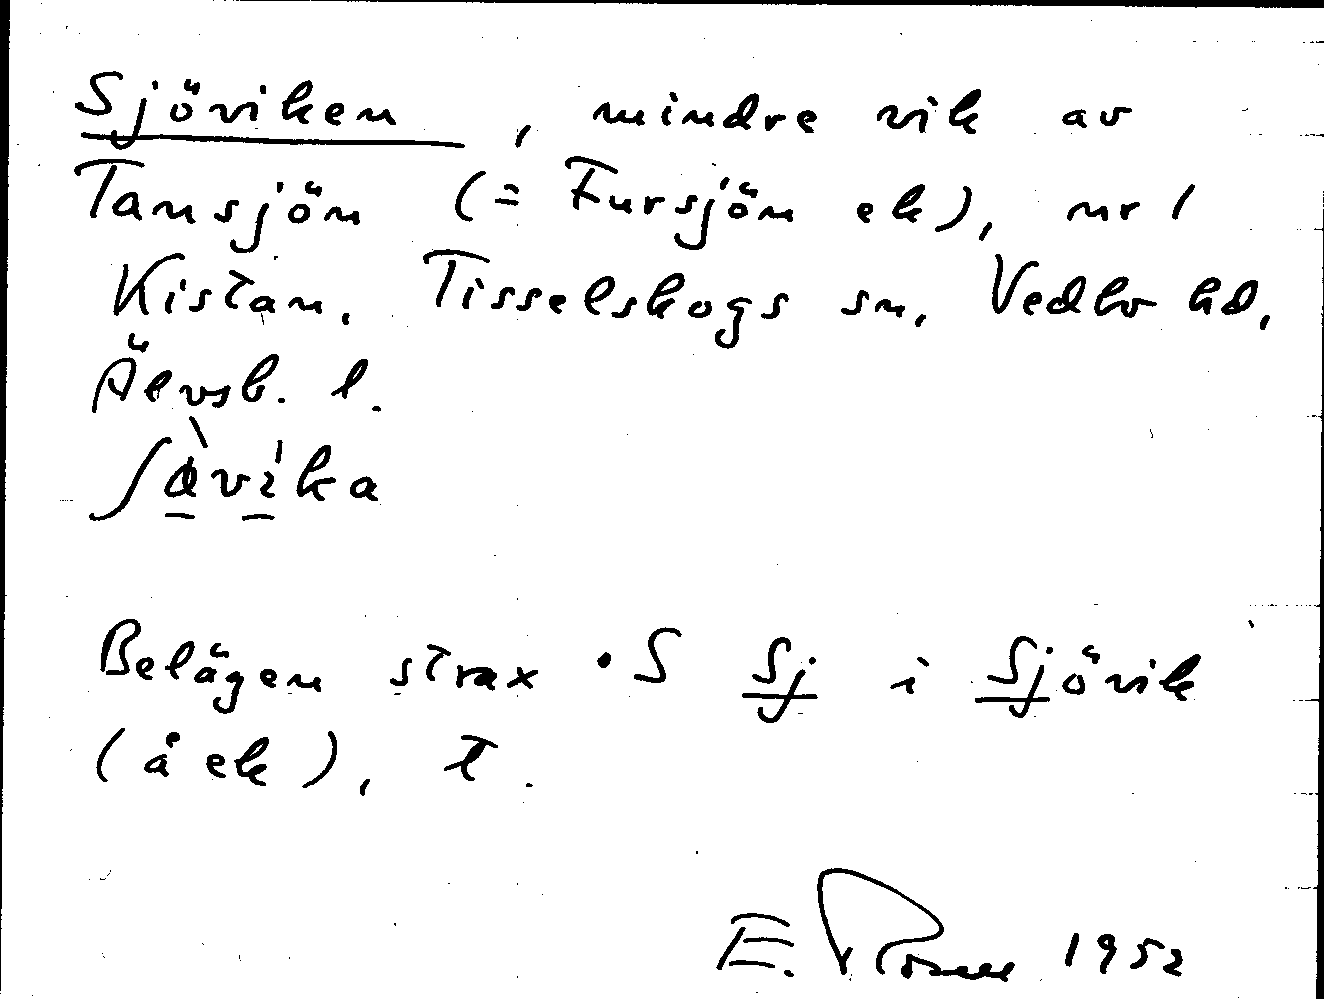 Sjöviken, mindre vik av
Tansjön (= Fursjön ek), nr 1
Kistan, Tisselskogs sn, Vedbo hd,
Älvsb. l.
Belägen strax · S Sj i Sjövik
(å ek), t.
E. 1952